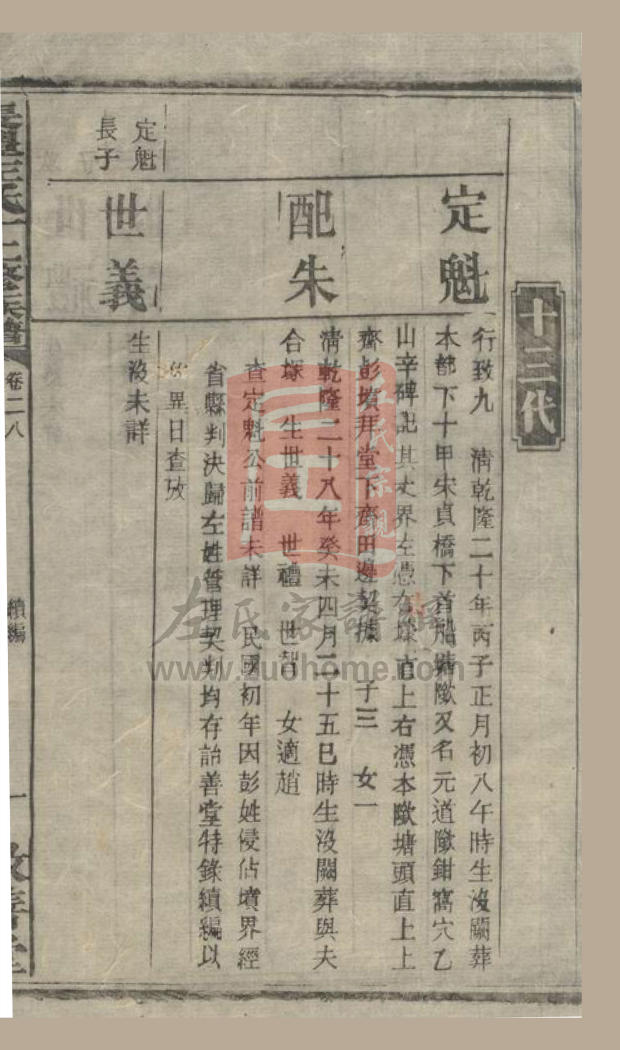 十三代
定魁
行致九　清乾隆二十年丙子正月初八午時生沒闕葬
本都下十甲宋貞橋下首船塘歐又名元道歐鉗窩穴乙
山辛碑記其丈界左憑右直上右憑本歐塘頭直上上
齊彭墳拜堂下齊田邊契據　子三　女一
配朱
清乾隆二十八年癸未四月二十五巳時生沒闕葬與夫
合塚　生世義　世禮　世智　女適趙
查定魁公前譜未詳　民國初年因彭姓侵佔墳界經
省縣判決歸左姓管理契判均存詒善堂特錄續編以
異日查攷
定魁
長子
世義
生沒未詳
氏十二修族譜
卷二八
續編
一
左氏宗親
左氏家譜網
www.zuohome.com